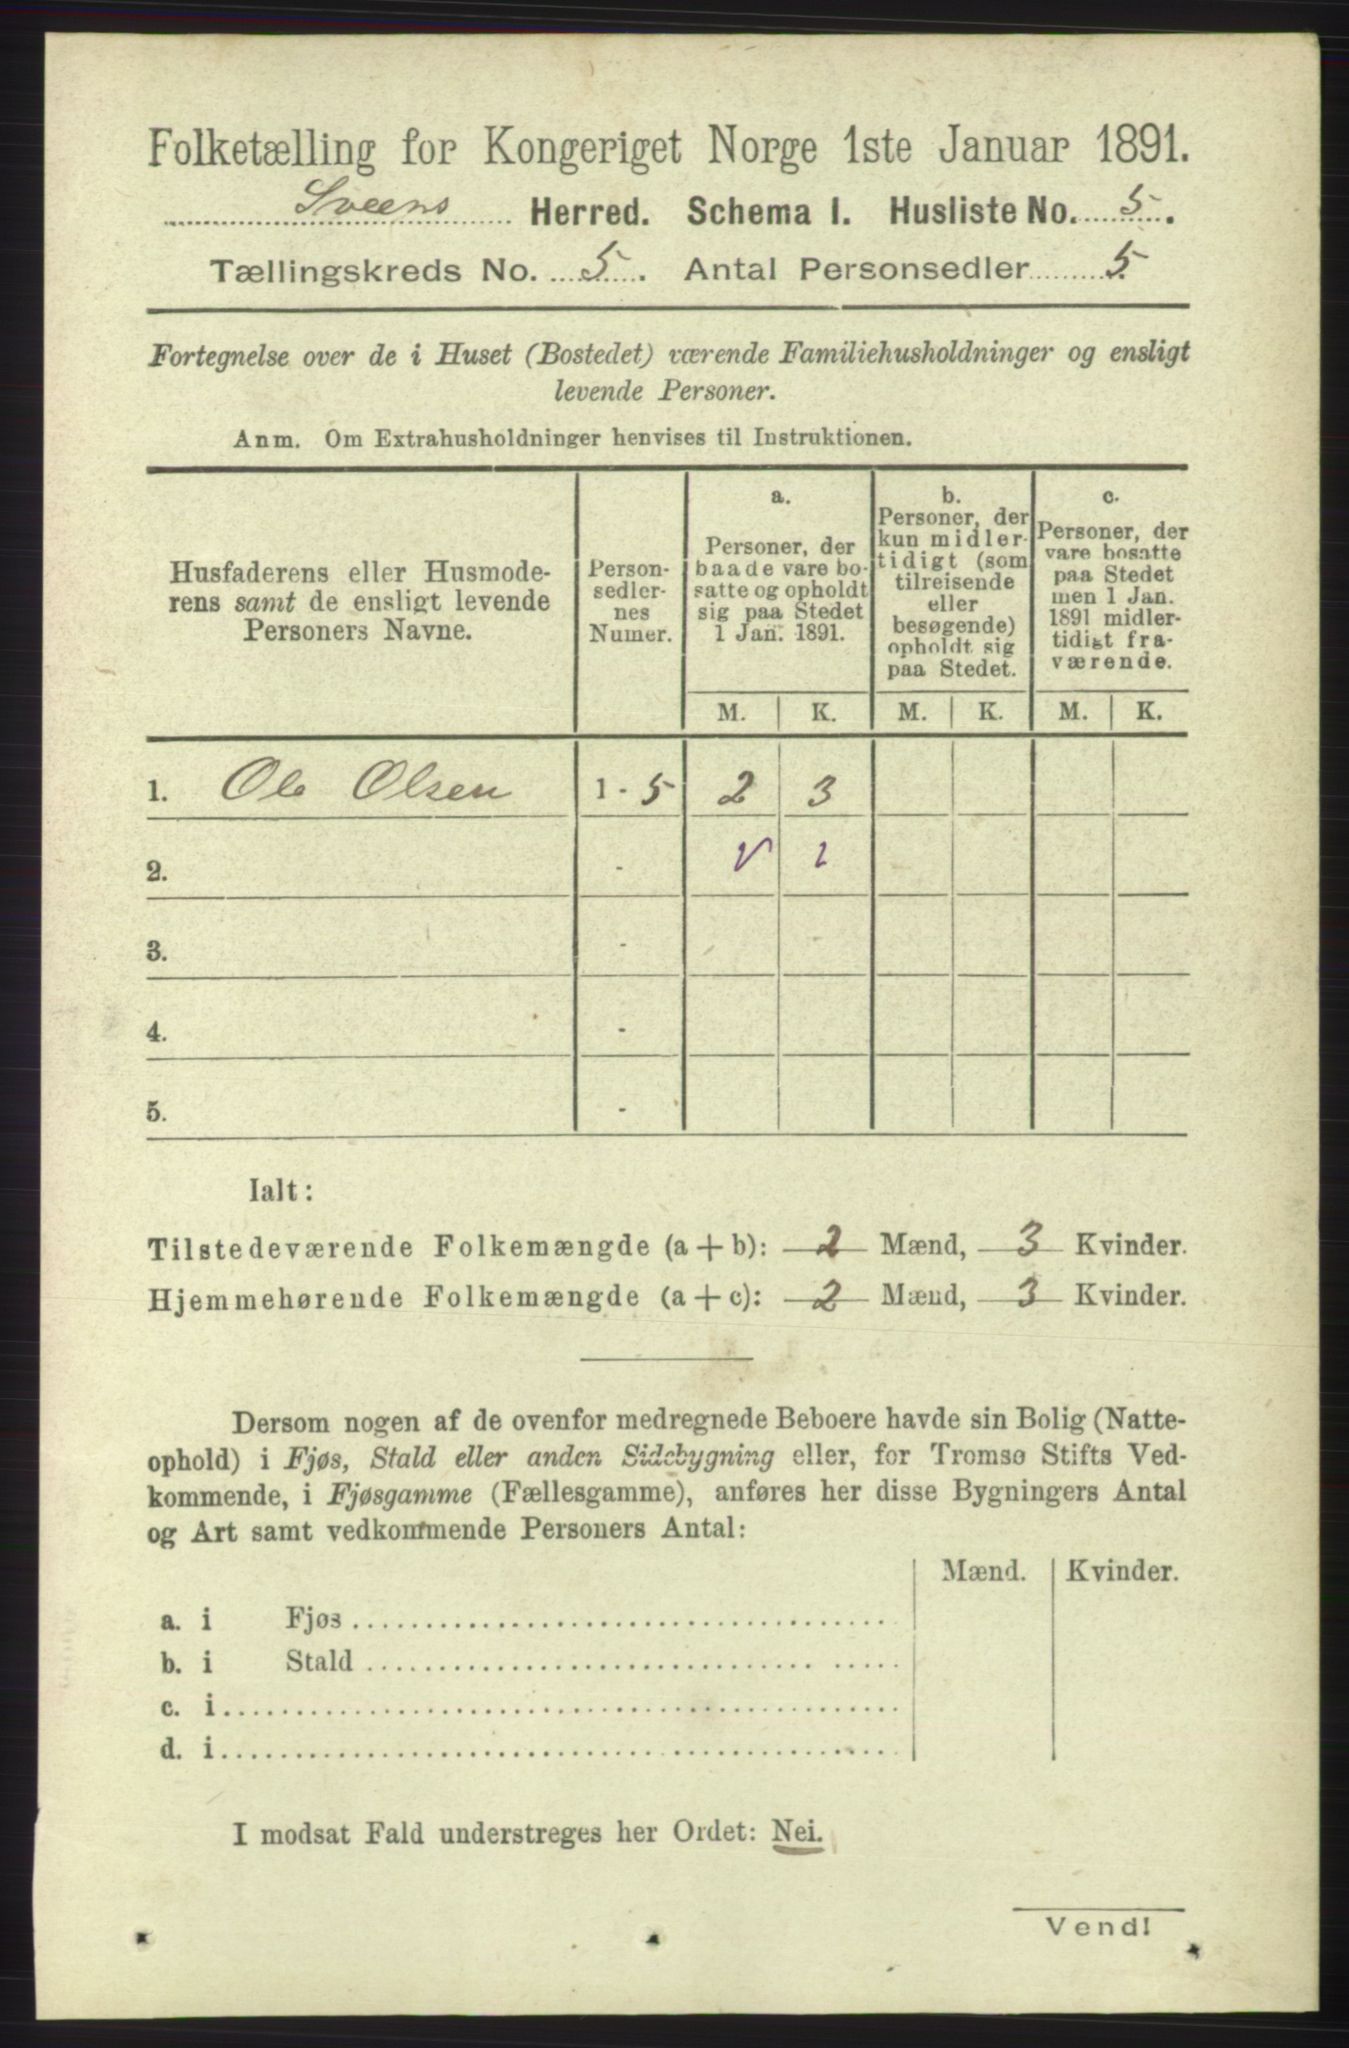 Folketælling for Kongeriget Norge 1ste Januar 1891.
Sveens Herred. Schema 1. Husliste No. 5.
Tællingskreds No. 5. Antal Personsedler 5
Fortegnelse over de i Huset (Bostedet) værende Familiehusholdninger og ensligt
levende Personer.
Anm. Om Extrahusholdninger henvises til Instruktionen.
Husfaderens eller Husmode-
rens samt de ensligt levende
Personers Navne.
Person-
sedler-
nes
Numer.
a.
Personer, der
baade vare bo-
satte og opholdt
sig paa Stedet
1 Jan. 1891.
b.
Personer, der
kun midler-
tidigt (som
tilreisende
eller
besøgende)
opholdt sig
paa Stedet.
c.
Personer, der
vare bosatte
paa Stedet
men 1 Jan.
1891 midler-
tidigt fra-
værende.
M. K. M. K. M. K.
1. Ole Olsen 1 - 5 2 3
2. -
3. -
4. -
5. -
Ialt:
Tilstedeværende Folkemængde (a + b): 2 Mænd, 3 Kvinder.
Hjemmehørende Folkemængde (a + c): 2 Mænd, 3 Kvinder.
Dersom nogen af de ovenfor medregnede Beboere havde sin Bolig (Natte-
ophold) i Fjøs, Stald eller anden Sidebygning eller, for Tromsø Stifts Ved-
kommende, i Fjøsgamme (Fællesgamme), anføres her disse Bygningers Antal
og Art samt vedkommende Personers Antal:
Mænd. Kvinder.
a. i Fjøs
b. i Stald
c. i
d. i
I modsat Fald understreges her Ordet: Nei.
Vend!